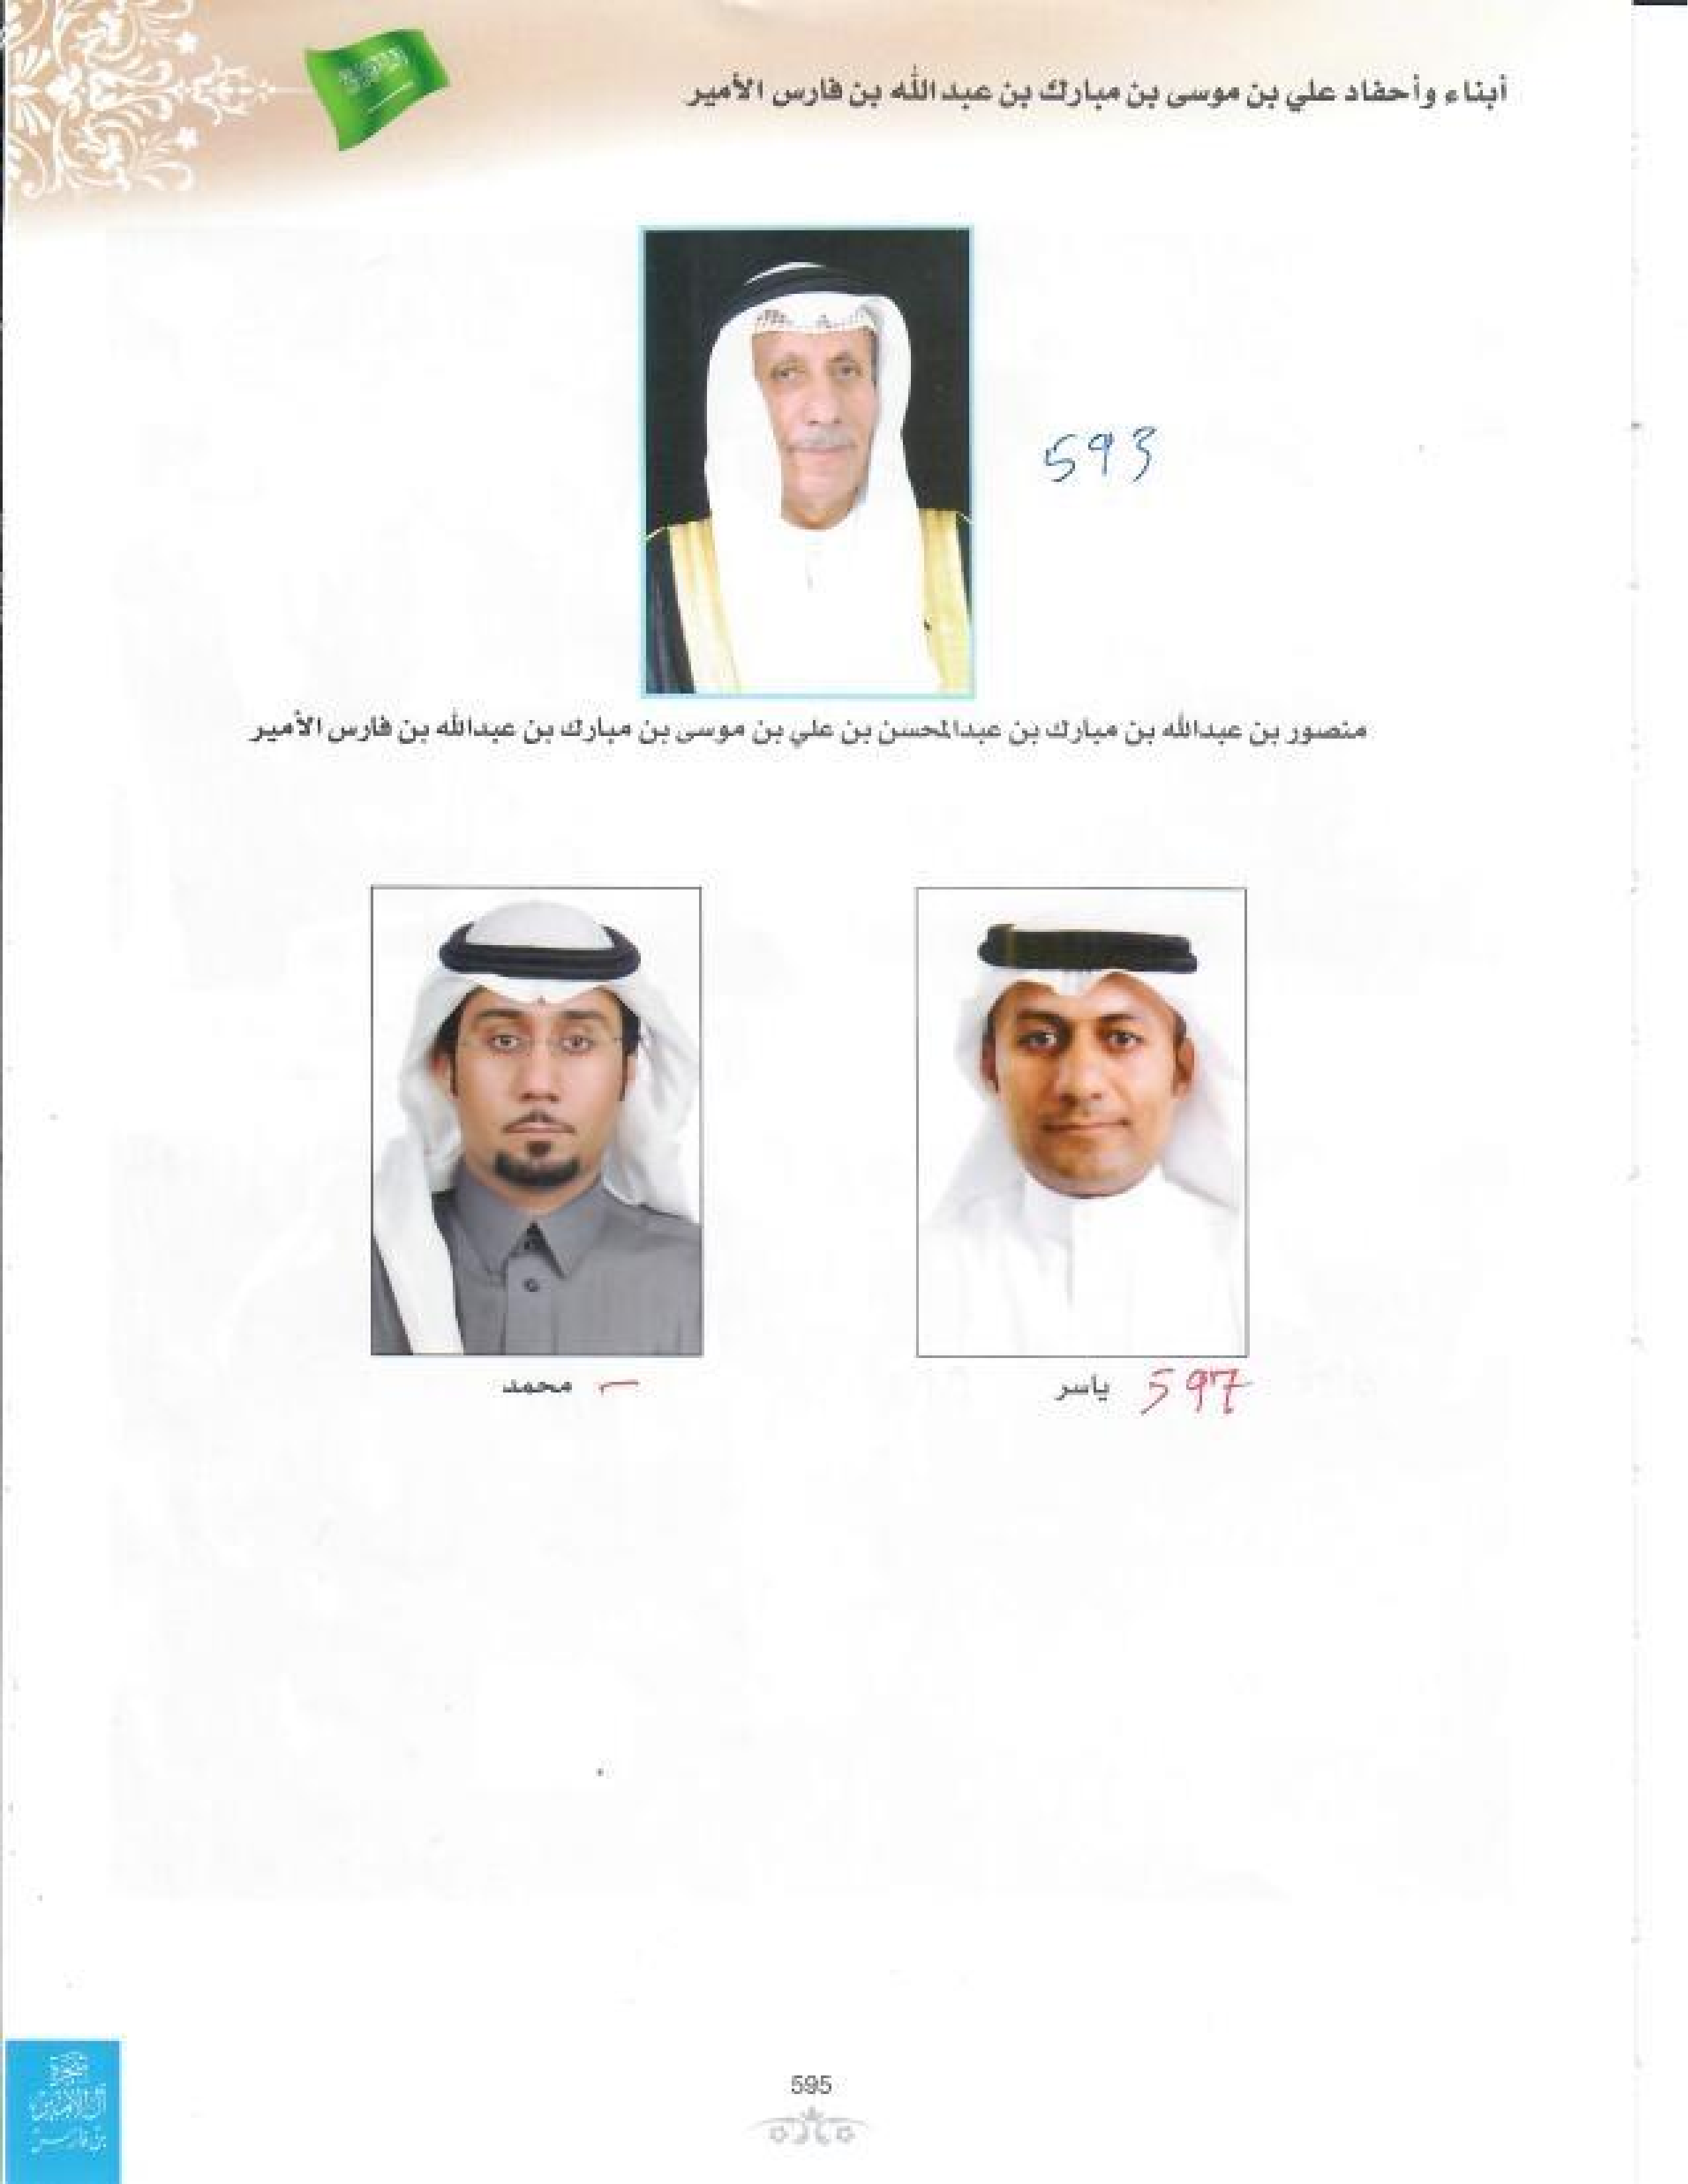 أبناء وأحفاد علي بن موسى بن مبارك بن عبدالله بن فارس الأمير
593
منصور بن عبدالله بن مبارك بن عبدالمحسن بن علي بن موسى بن مبارك بن عبدالله بن فارس الأمير
597 ياسر
محمد
595
شجرة
آل الأمير
بن فارس